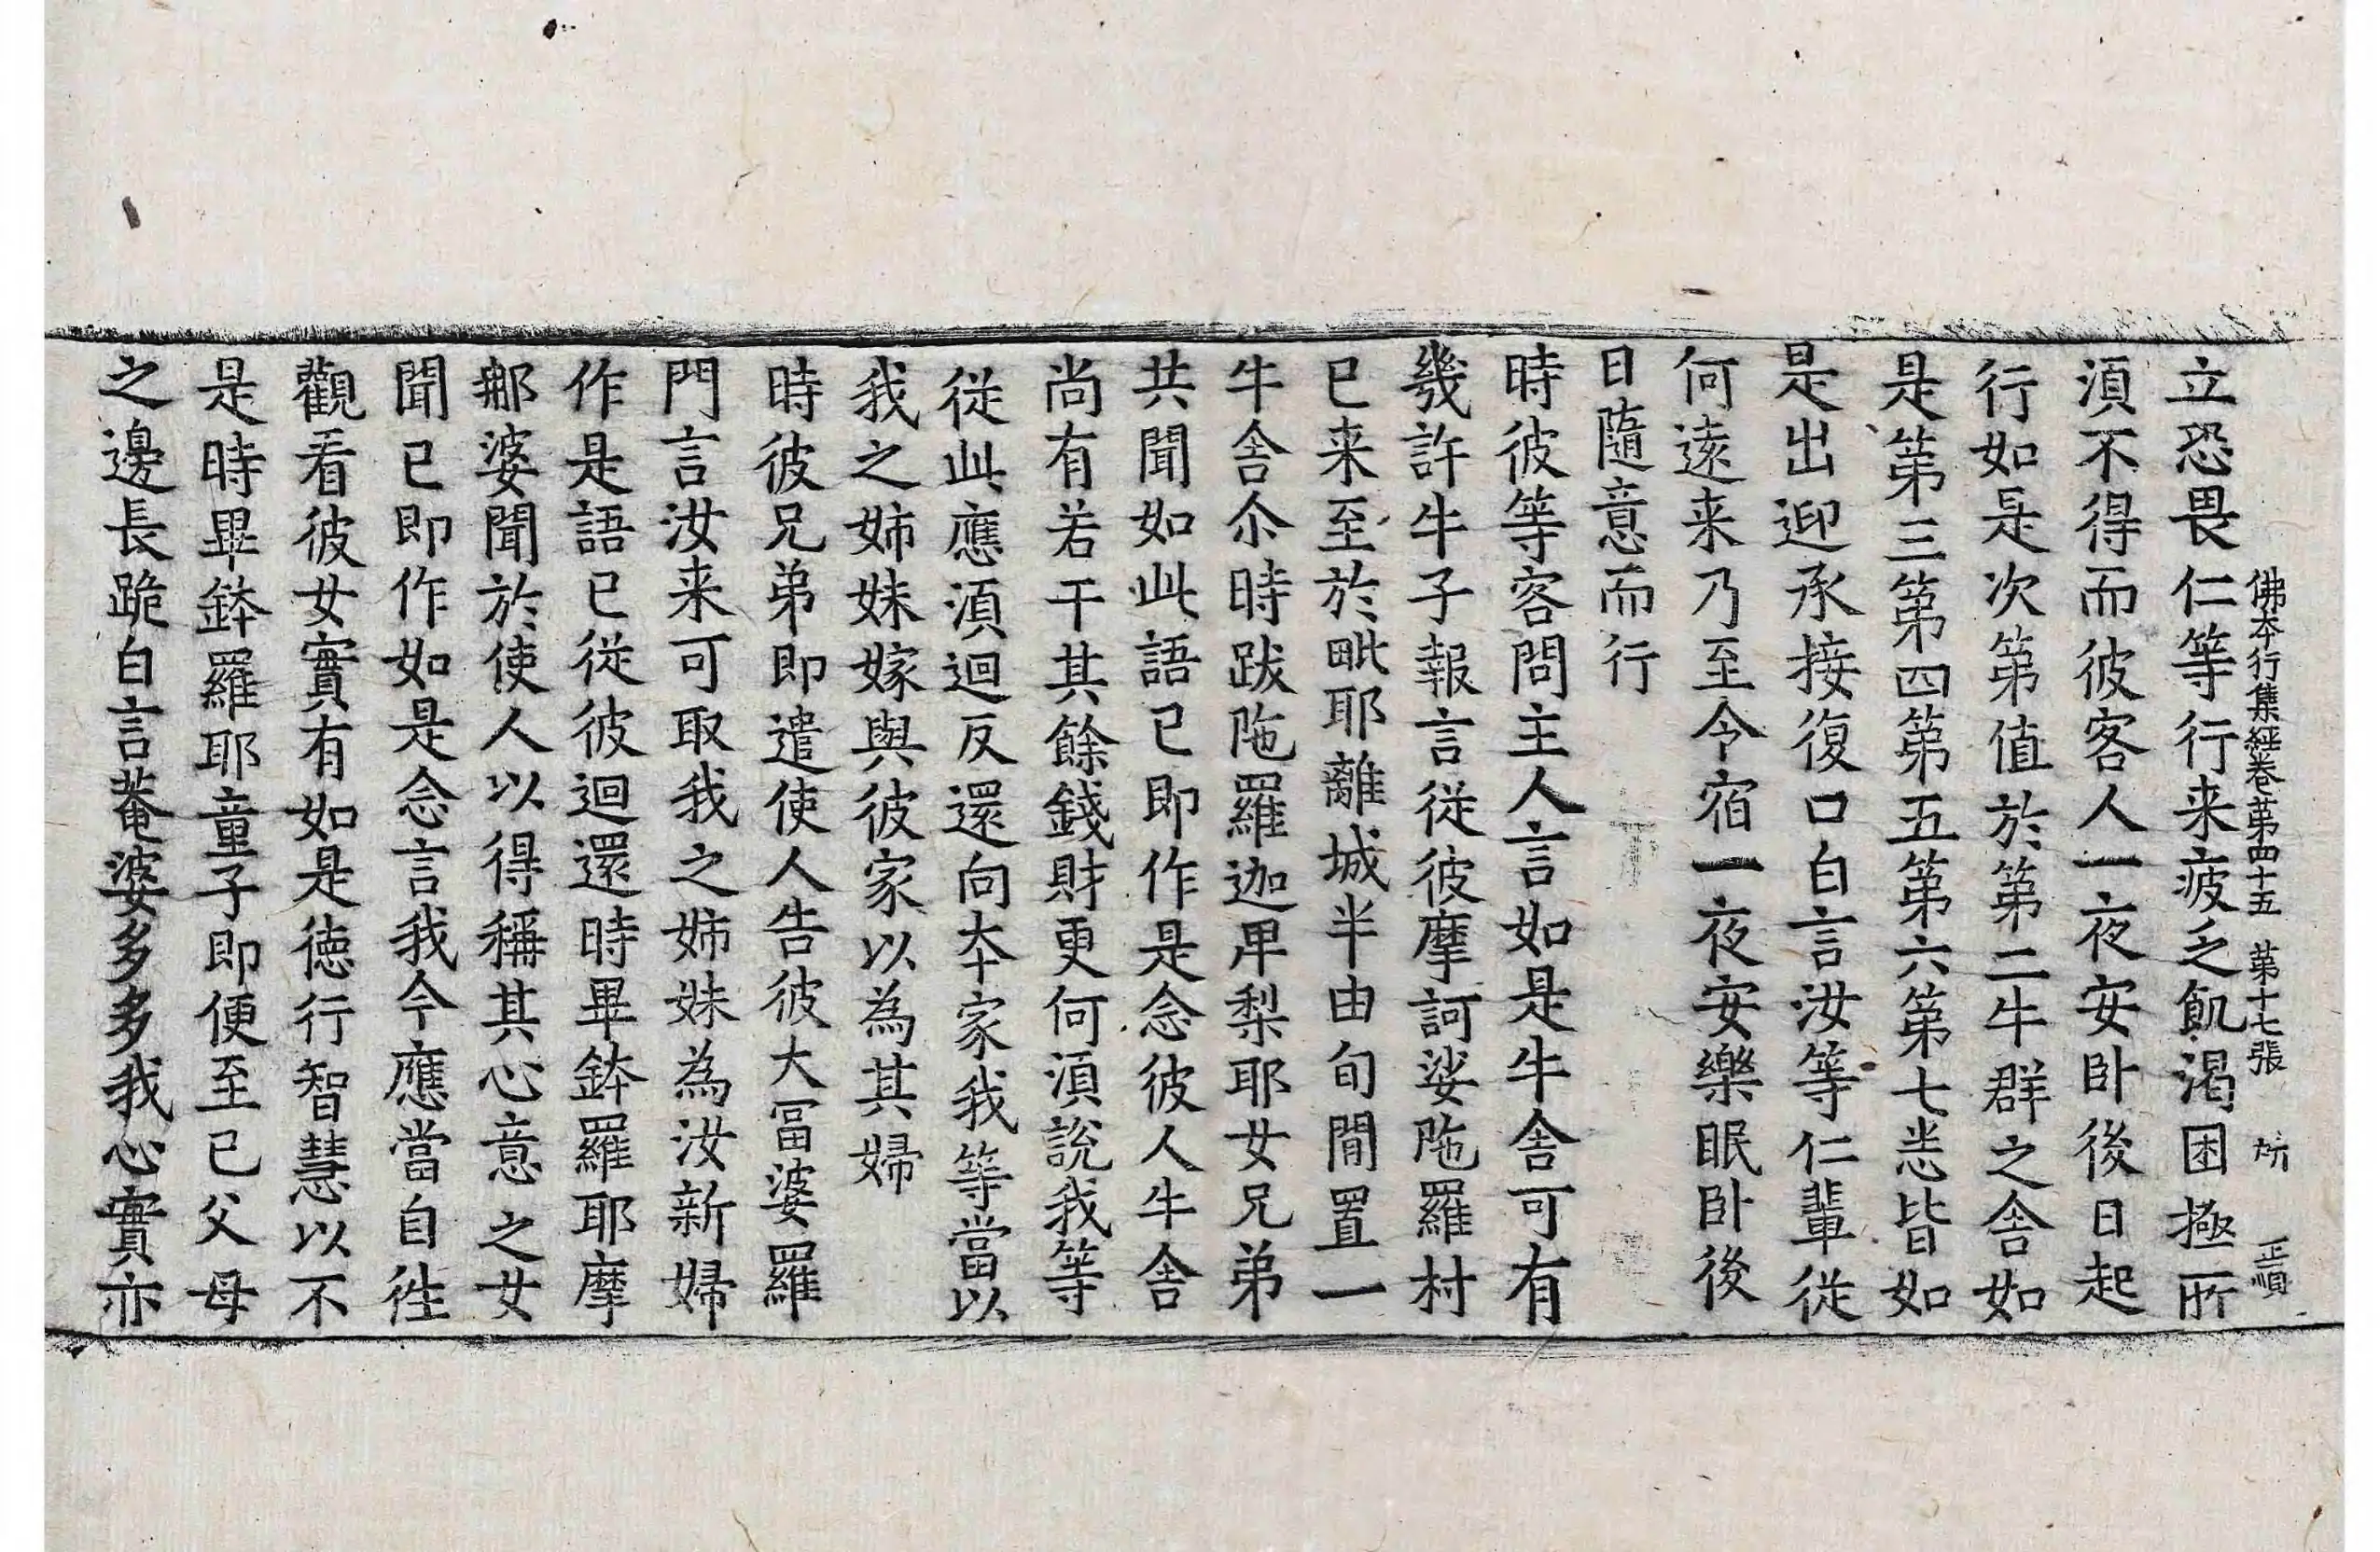 佛夲行集經卷第四十五 第十七張 㪽 正順
立恐畏仁等行来疲乏飢渴困極所
湏不得而彼客人一夜安卧後日起
行如是次第值於第二牛群之舍如
是第三第四第五第六第七悉皆如
是出迎承接復口白言汝等仁輩從
何遠来乃至今宿一夜安樂眠卧後
日隨意而行
時彼等客問主人言如是牛舍可有
幾許牛子報言從彼摩訶娑陁羅村
已来至於毗耶離城半由旬間置一
牛舍尒時跋陁羅迦卑梨耶女兄弟
共聞如此語已即作是念彼人牛舍
尚有若干其餘錢財更何湏說我等
從此應湏迴反還向夲家我等當以
我之姊妹嫁與彼家以為其婦
時彼兄弟即遣使人告彼大冨婆羅
門言汝来可取我之姊妹為汝新婦
作是語已從彼迴還時畢鉢羅耶摩
那婆聞於使人以得稱其心意之女
聞已即作如是念言我今應當自往
觀看彼女實有如是德行智慧以不
是時畢鉢羅耶童子即便至已父母
之邊長跪白言菴婆多多我心實亦